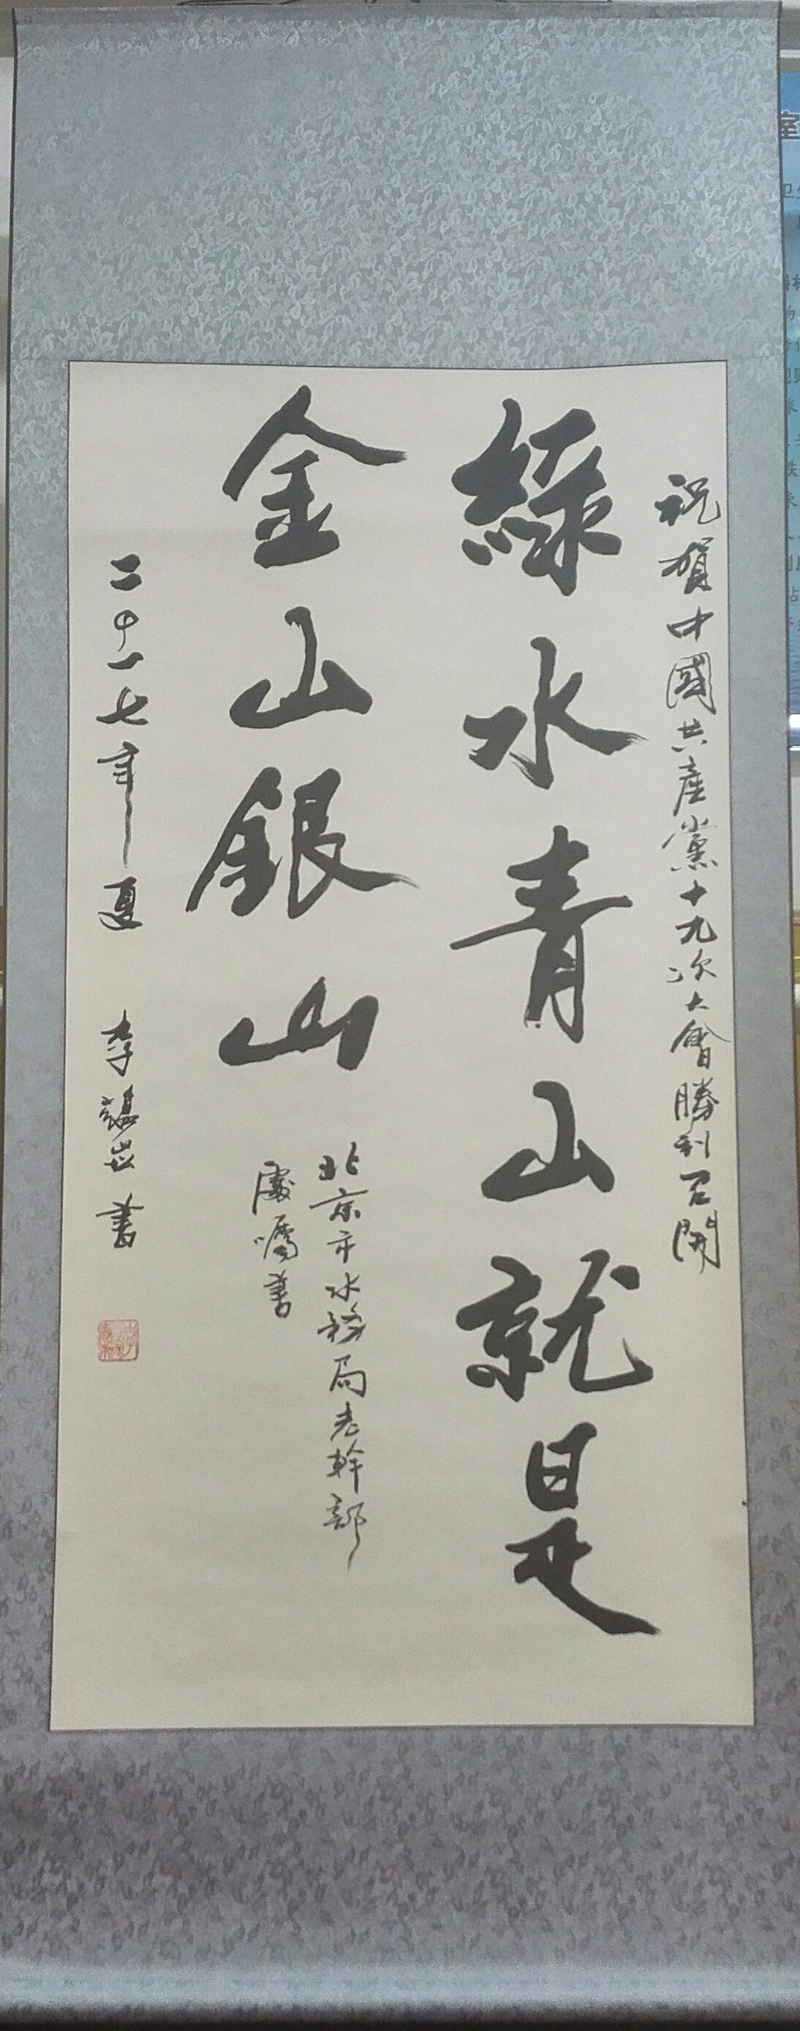 祝賀中國共產黨十九次大會勝利召開
綠水青山就是
金山銀山
北京市水務局老幹部
處囑書
二〇一七年夏 李 書